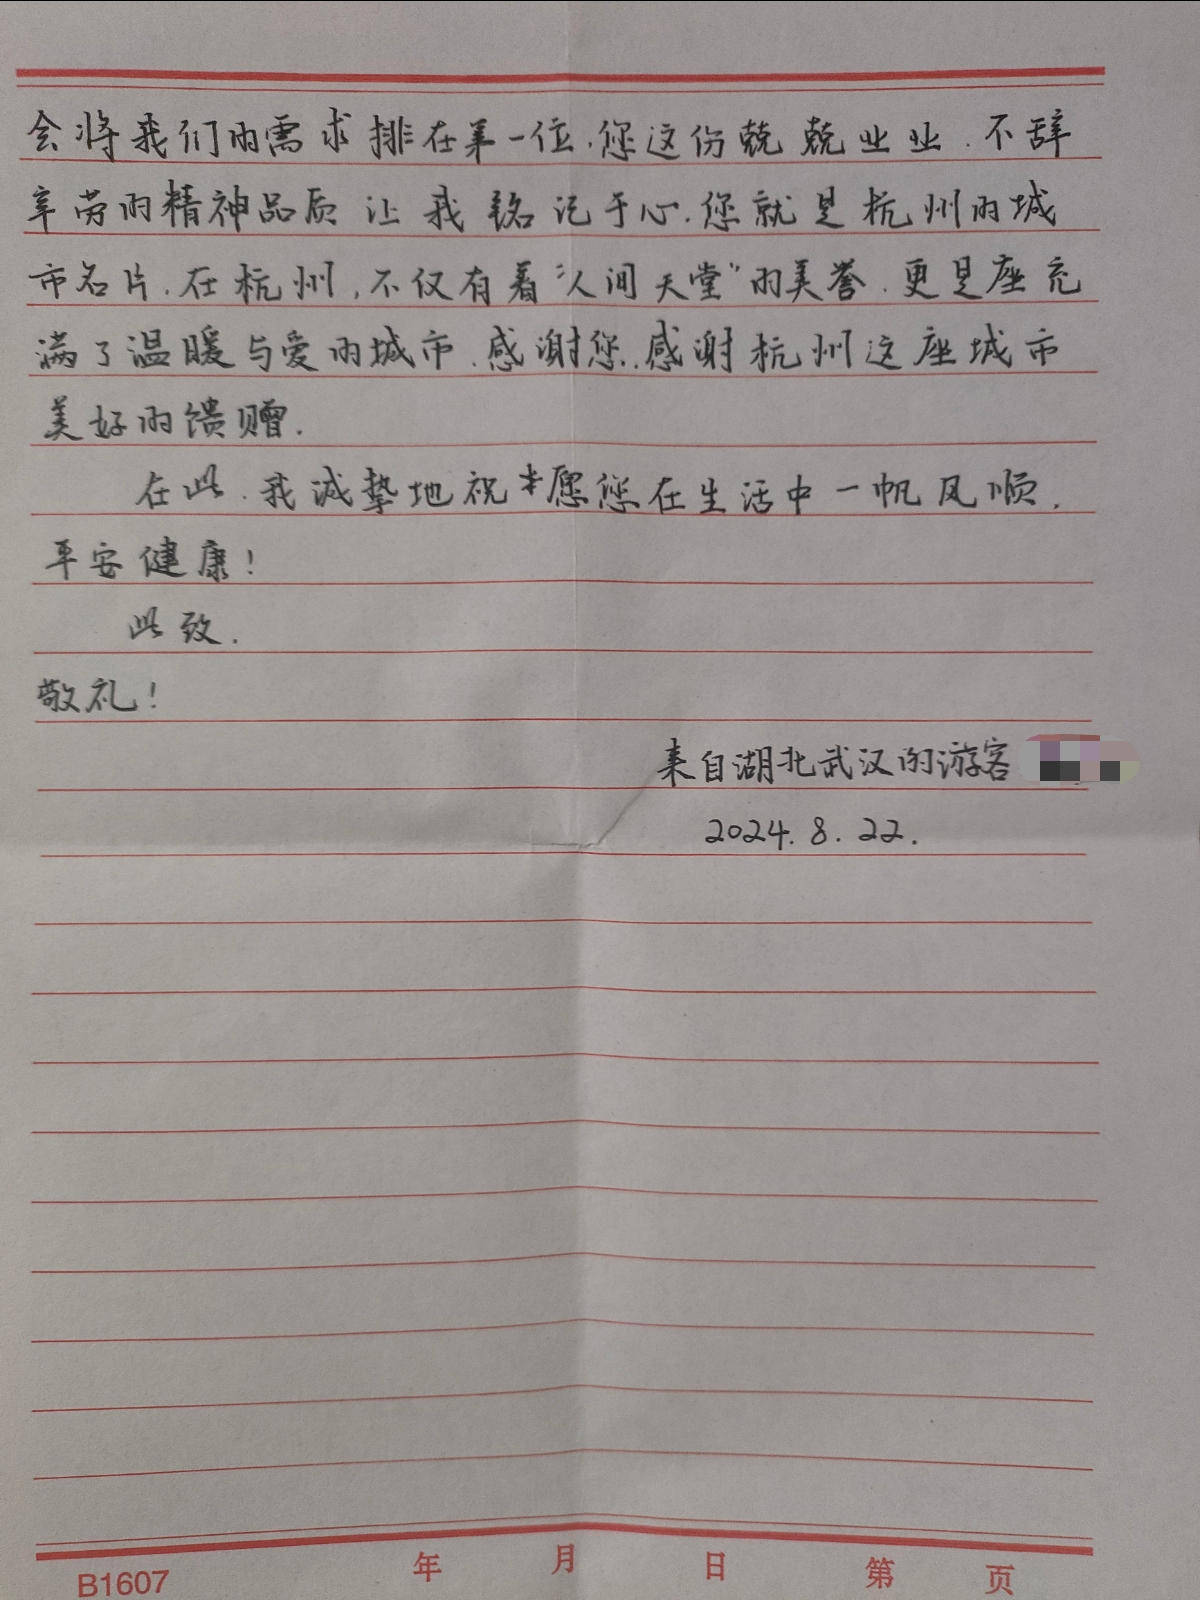 会将我们的需求排在第一位.您这份兢兢业业.不辞
辛劳的精神品质让我铭记于心.您就是杭州的城
市名片.在杭州,不仅有着“人间天堂”的美誉.更是座充
满了温暖与爱的城市.感谢您..感谢杭州这座城市
美好的馈赠.
在此.我诚挚地祝愿您在生活中一帆风顺.
平安健康!
此致.
敬礼!
来自湖北武汉的游客
2024.8.22.
B1607 年 月 日 第 页